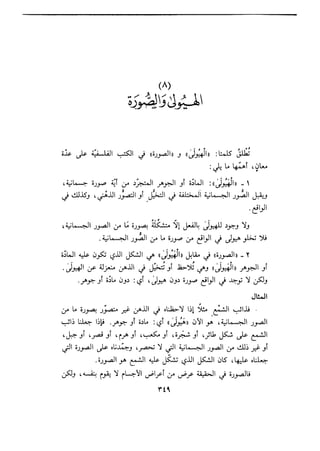 (٨)
الهيولى والصورة
تُطلقُ كلمتا: «الْهيُولَىٰ» و «الصورة» في الكتب الفلسفيّة على عدّة
معانٍ، أهمّها ما يلي:
١ ـ «الْهيُولَىٰ»: المادّة أو الجوهر المتجرّد من أيّة صورة جسمانية،
ويقبل الصُّور الجسمانية المختلفة في التخيُّل أو التصوُّر الذهني، وكذلك في
الواقع.
ولا وجود للهيولىٰ بالفعل إلَّا متشكّلةً بصورة مَا من الصور الجسمانية،
فلا تخلو هيولى في الواقع من صورة ما من الصُّور الجسمانية.
٢ ـ «الصورة» في مقابل «الْهيُولَىٰ» هي الشكل الذي تكون عليه المادّة
أو الجوهر «الْهيُولَىٰ» وهي تُلاحظ أو تُتخيل في الذهن منعزلة عن الهيولى.
ولكن لا توجد في الواقع صورة دون هيولىٰ، أي: دون مادّة أو جوهر.
المثال
فذائب الشمْع مثلًا إذا لاحظناه في الذهن غير متصوَّر بصورة ما من
الصور الجسمانية، هو الآن «هَيُولَىٰ» أي: مادة أو جوهر. فإذا جعلنا ذائب
الشمع على شكل طائر، أو شجرة، أو مكعب، أو هرم، أو قصر، أو جبل،
أو غير ذلك من الصور الجسمانية التي لا تحصر، وجمّدناه على الصورة التي
جعلناه عليها، كان الشكل الذي تشكّل عليه الشمع هو الصورة.
فالصورة في الحقيقة عرض من أعراض الأجسام لا يقوم بنفسه، ولكن
٣٤٩